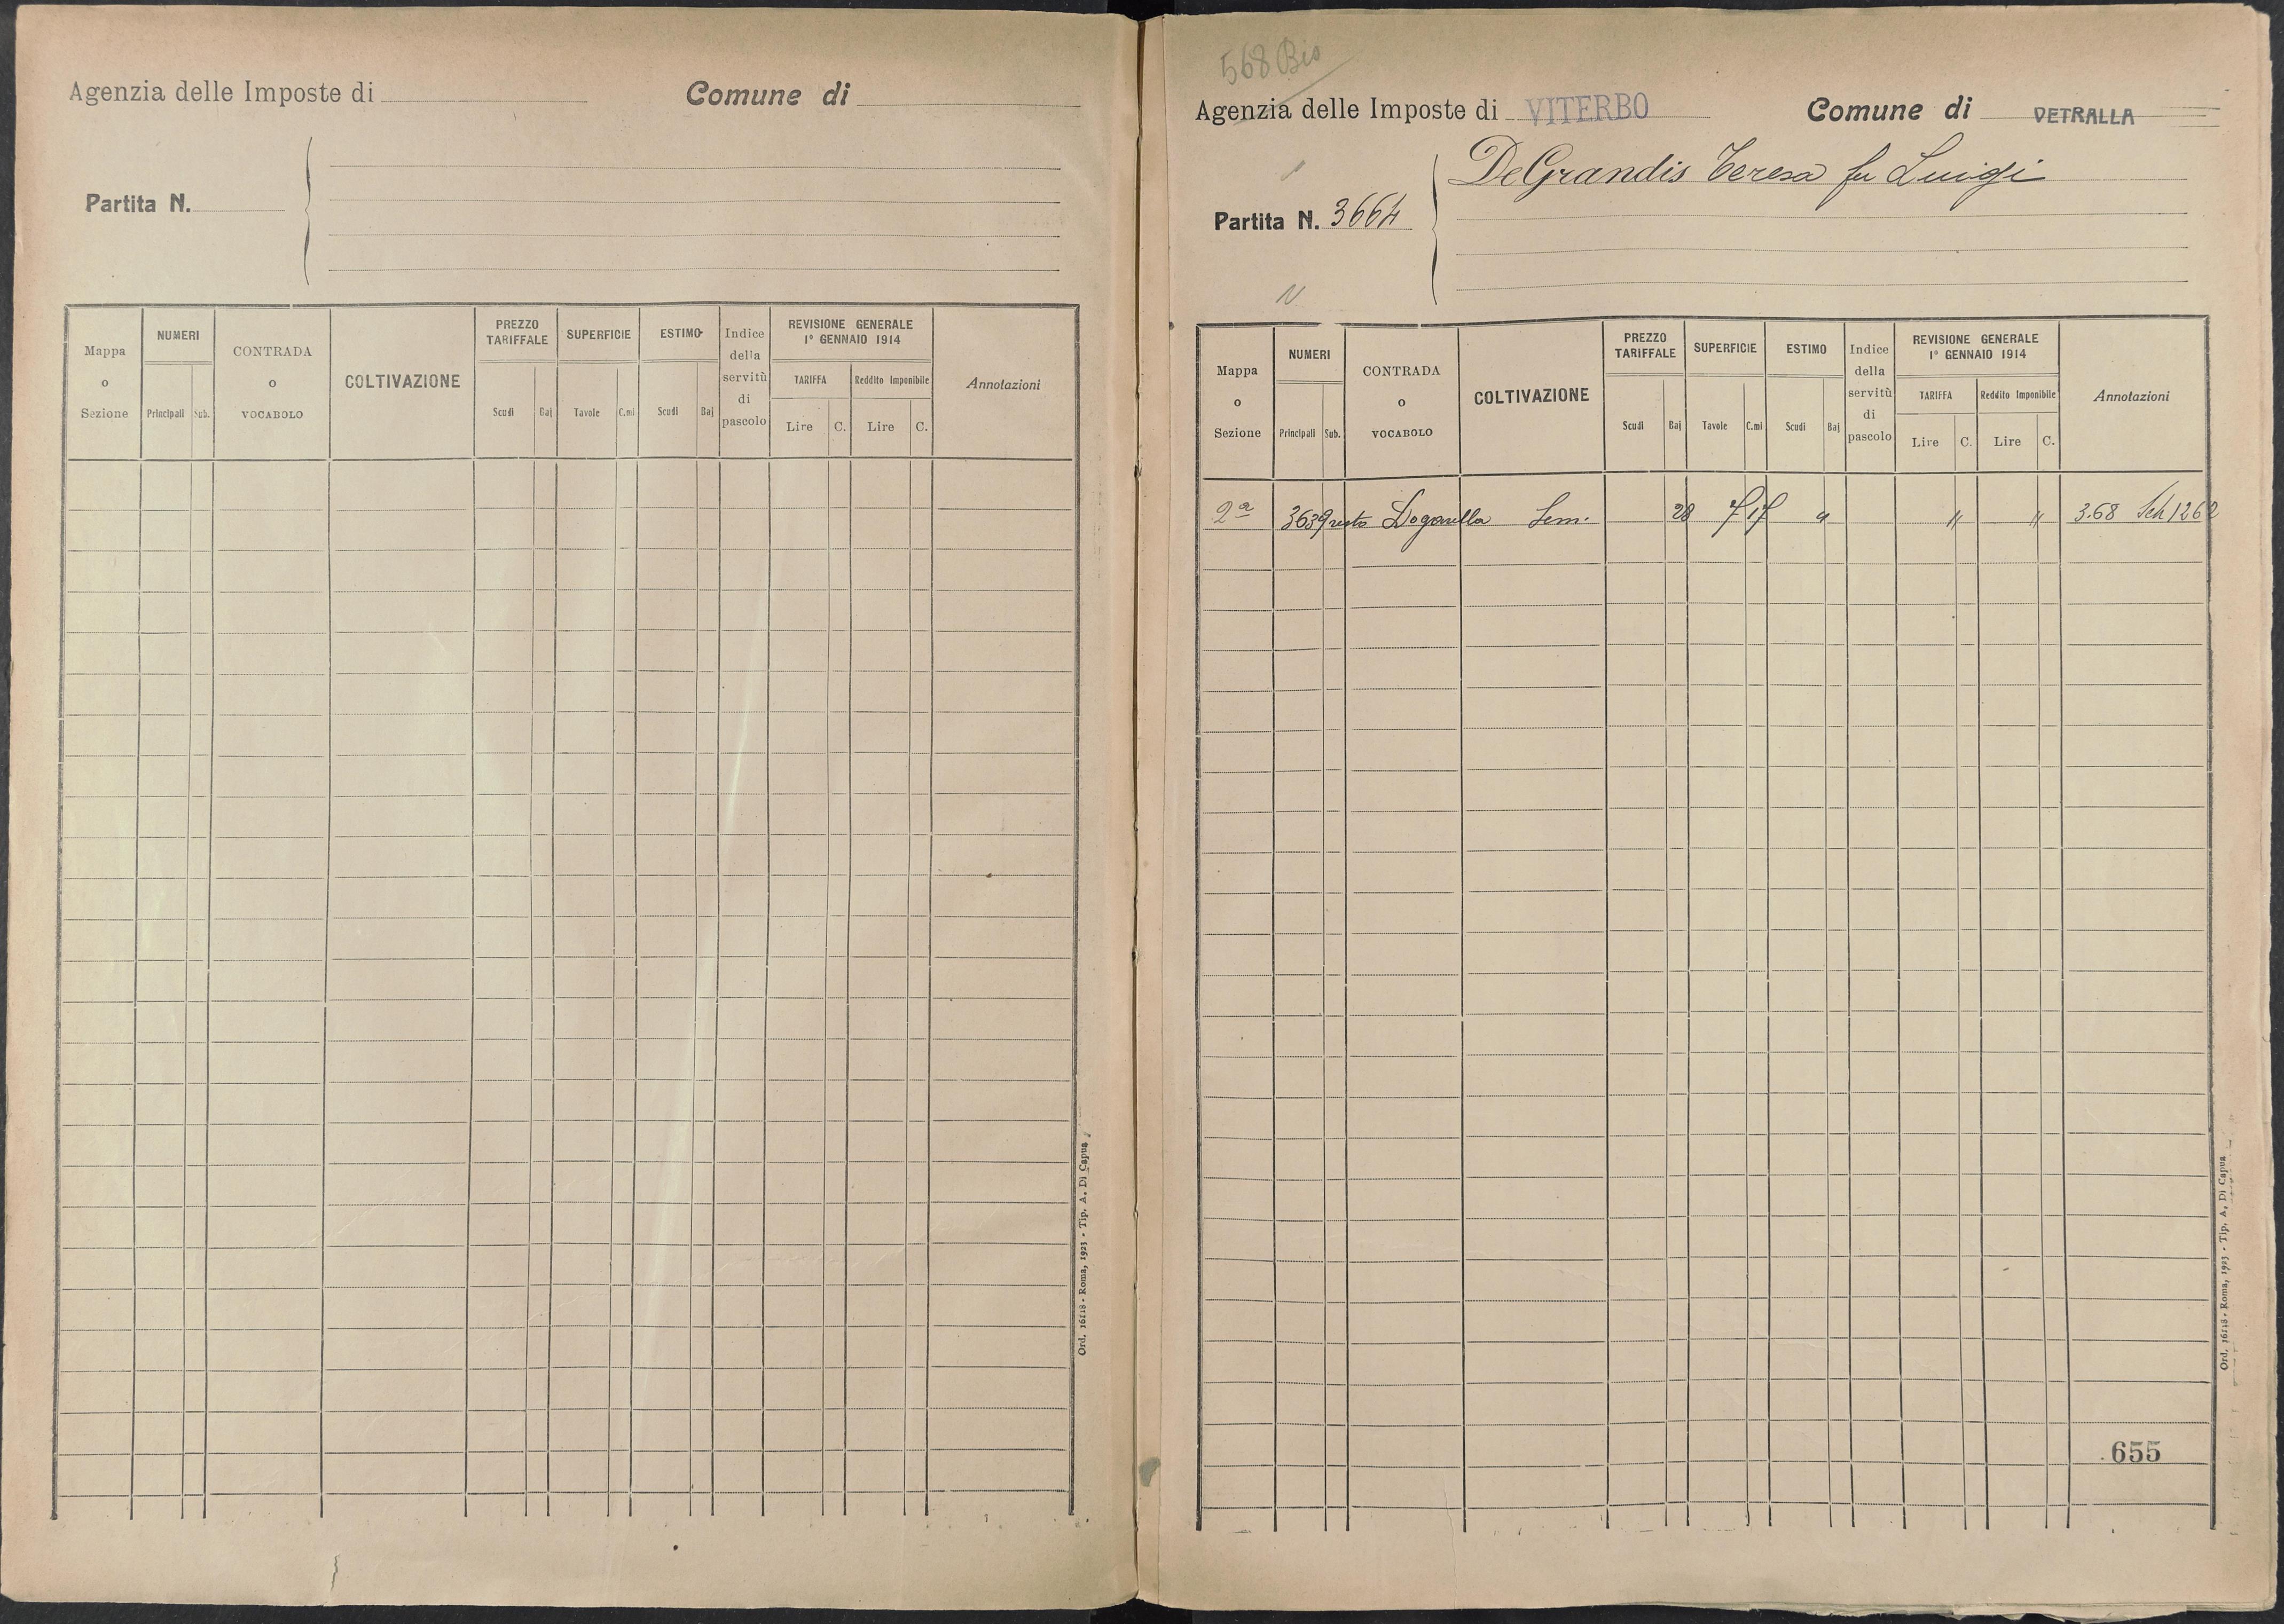 Agenzia delle Imposte di
Comune di
Partita N.
Mappa o Sezione
NUMERI
Principali
Sub.
CONTRADA o VOCABOLO
COLTIVAZIONE
PREZZO TARIFFALE
Scudi
Baj
SUPERFICIE
Tavole
C.mi
ESTIMO
Scudi
Baj
Indice della servitù di pascolo
REVISIONE GENERALE
1° GENNAIO 1914
TARIFFA
Lire
C.
Reddito Imponibile
Lire
C.
Annotazioni
Ord. 16118 - Roma, 1923 - Tip. A. Di Capua
568 Bis
Agenzia delle Imposte di VITERBO
Comune di VETRALLA
De Grandis Teresa fu Luigi
Partita N. 3664
Mappa o Sezione
NUMERI
Principali
Sub.
CONTRADA o VOCABOLO
COLTIVAZIONE
PREZZO TARIFFALE
Scudi
Baj
SUPERFICIE
Tavole
C.mi
ESTIMO
Scudi
Baj
Indice della servitù di pascolo
REVISIONE GENERALE
1° GENNAIO 1914
TARIFFA
Lire
C.
Reddito Imponibile
Lire
C.
Annotazioni
2ª 3639 resto Doganella Sem. 28 " " 3.68 Sch 1262
655
Ord. 16118 - Roma, 1923 - Tip. A. Di Capua